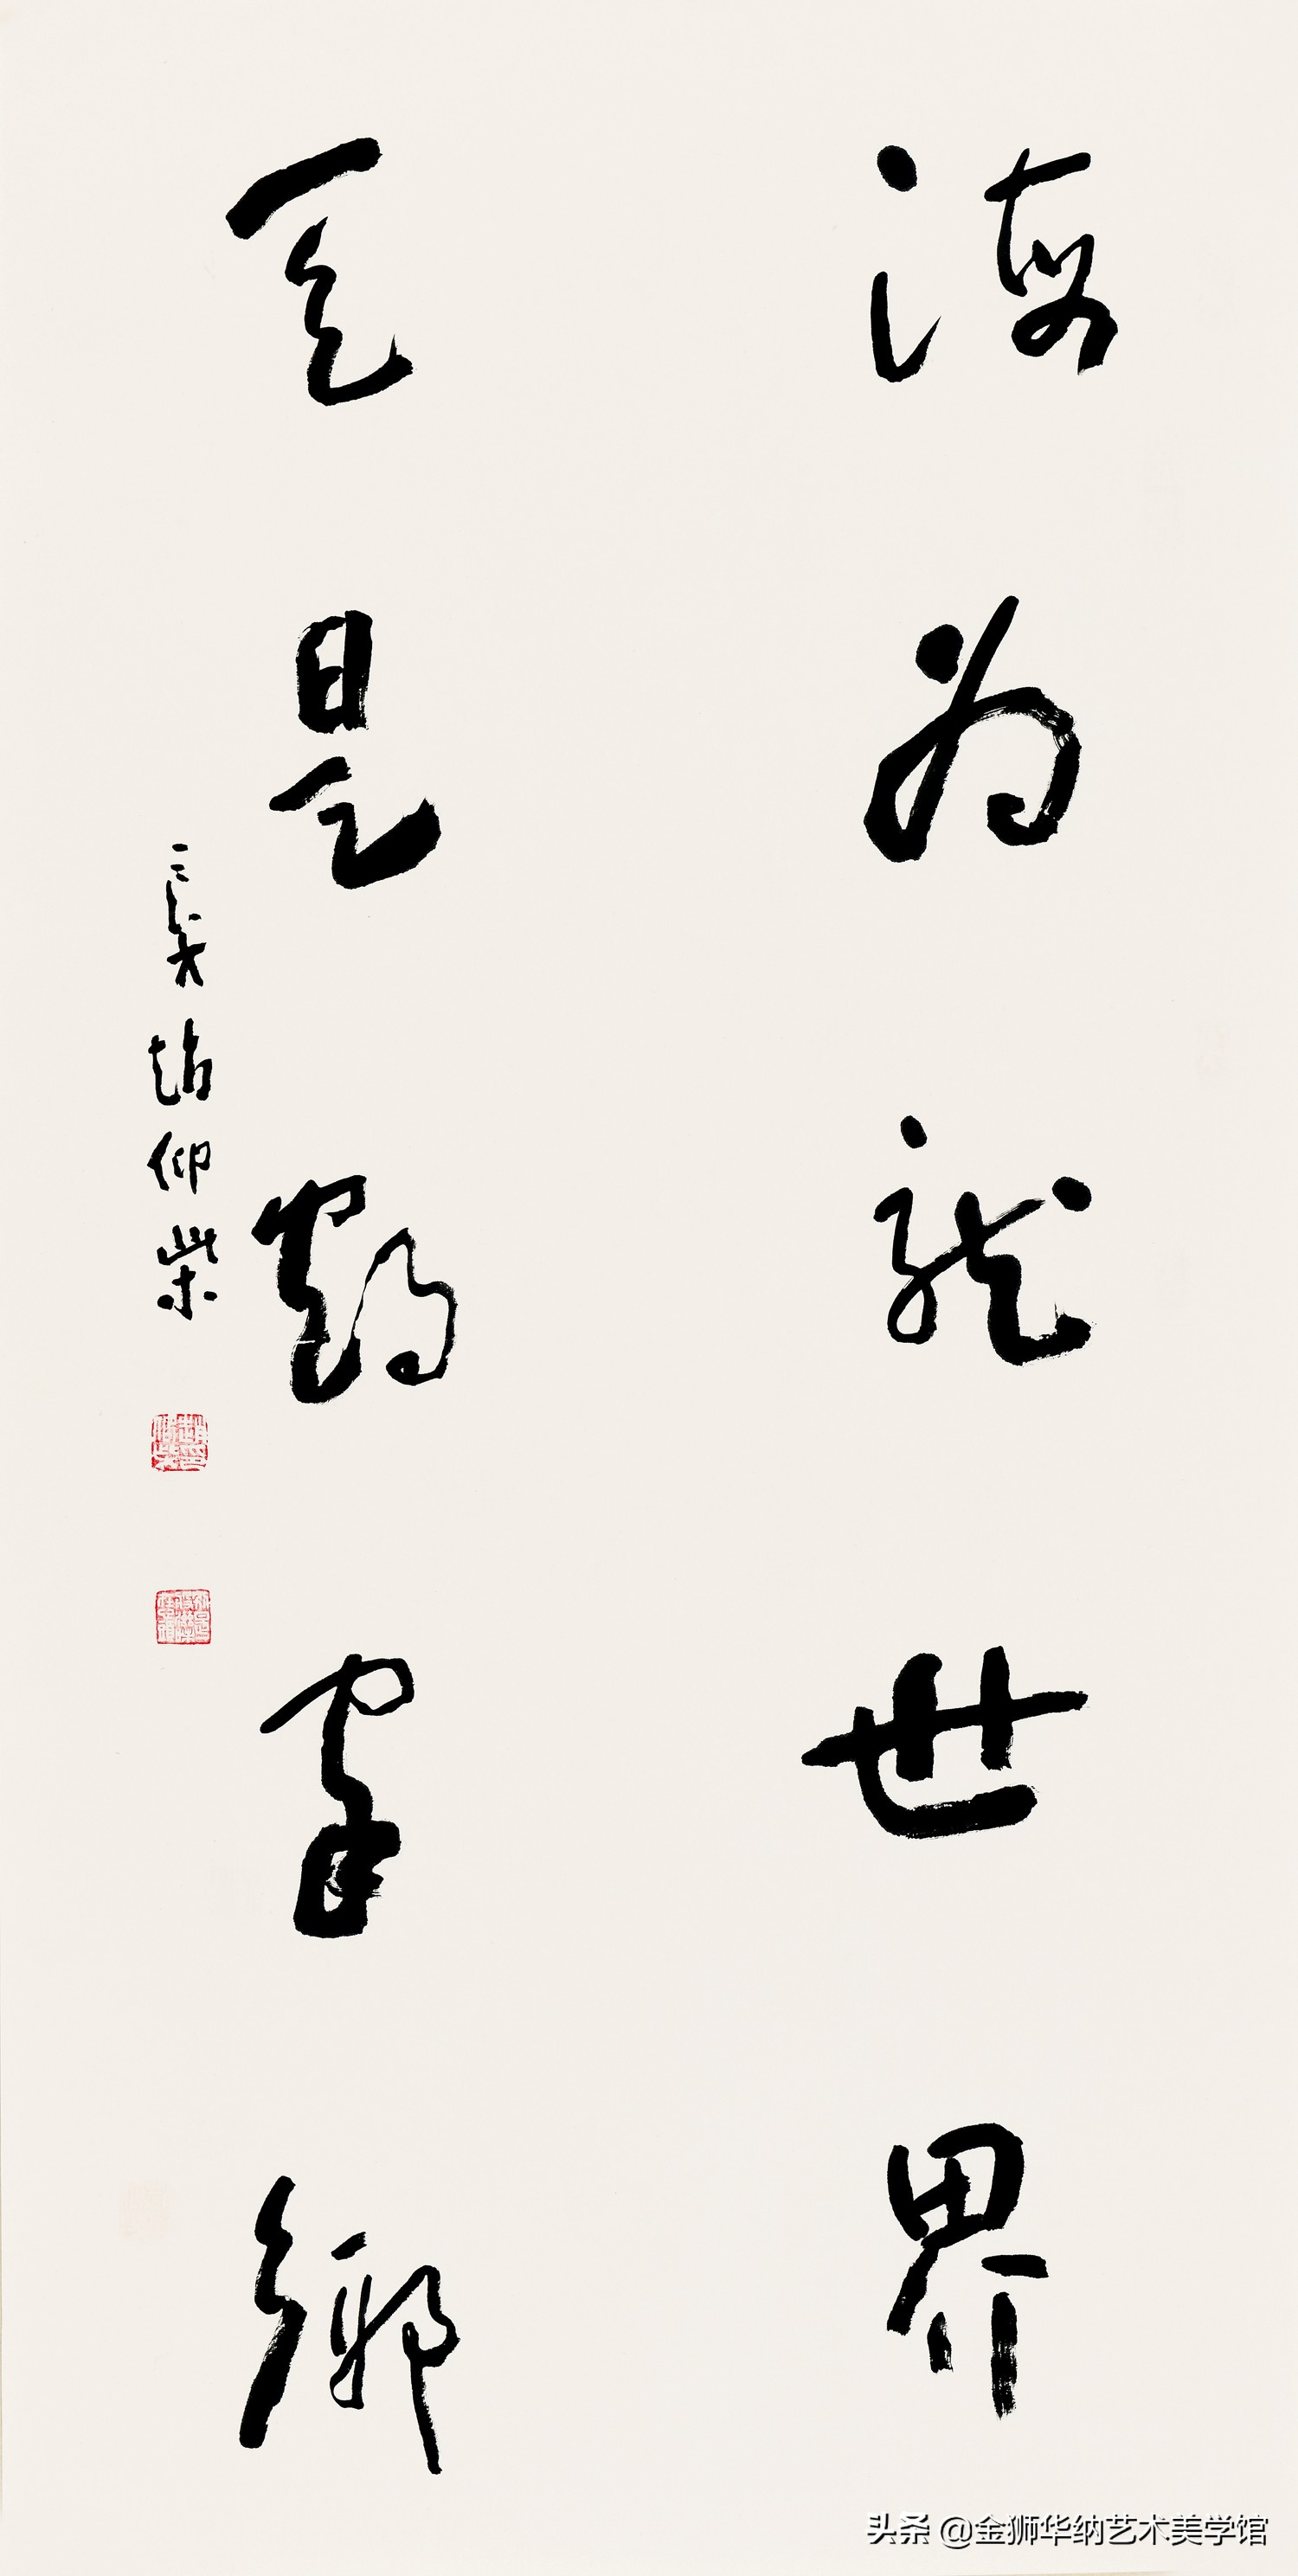 海为龙世界
天是鹤家乡
三長 赵仰柴
头条 @金狮华纳艺术美学馆